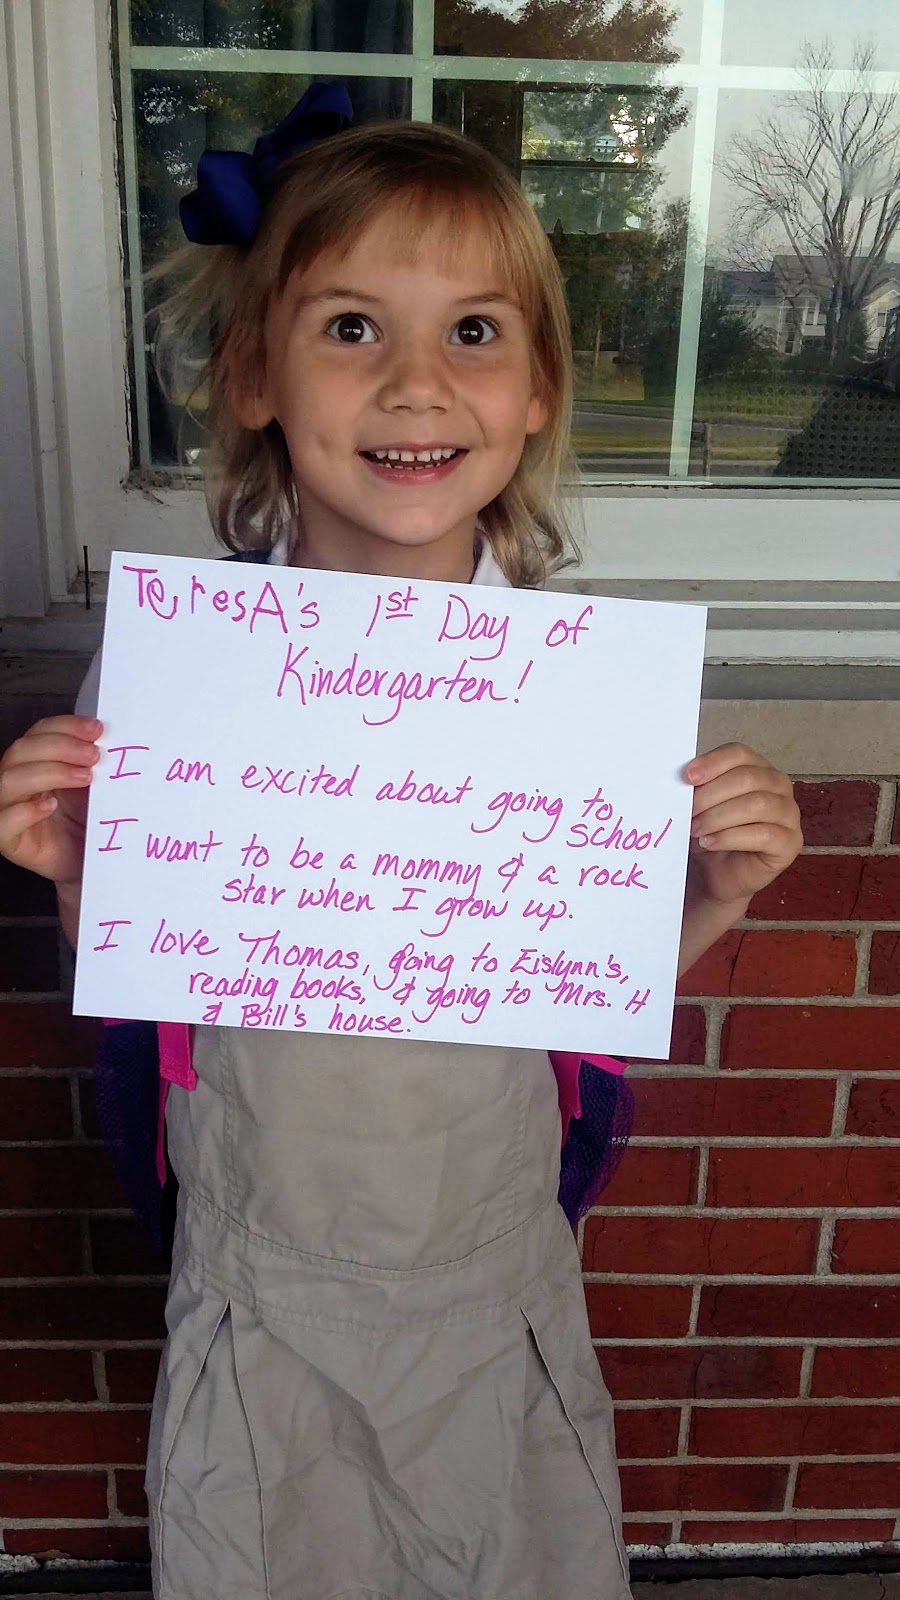 TeresA's 1st Day of
Kindergarten!
I am excited about going to
school
I want to be a mommy & a rock
star when I grow up.
I love Thomas, going to Eislynn's,
reading books, & going to Mrs. H
& Bill's house.